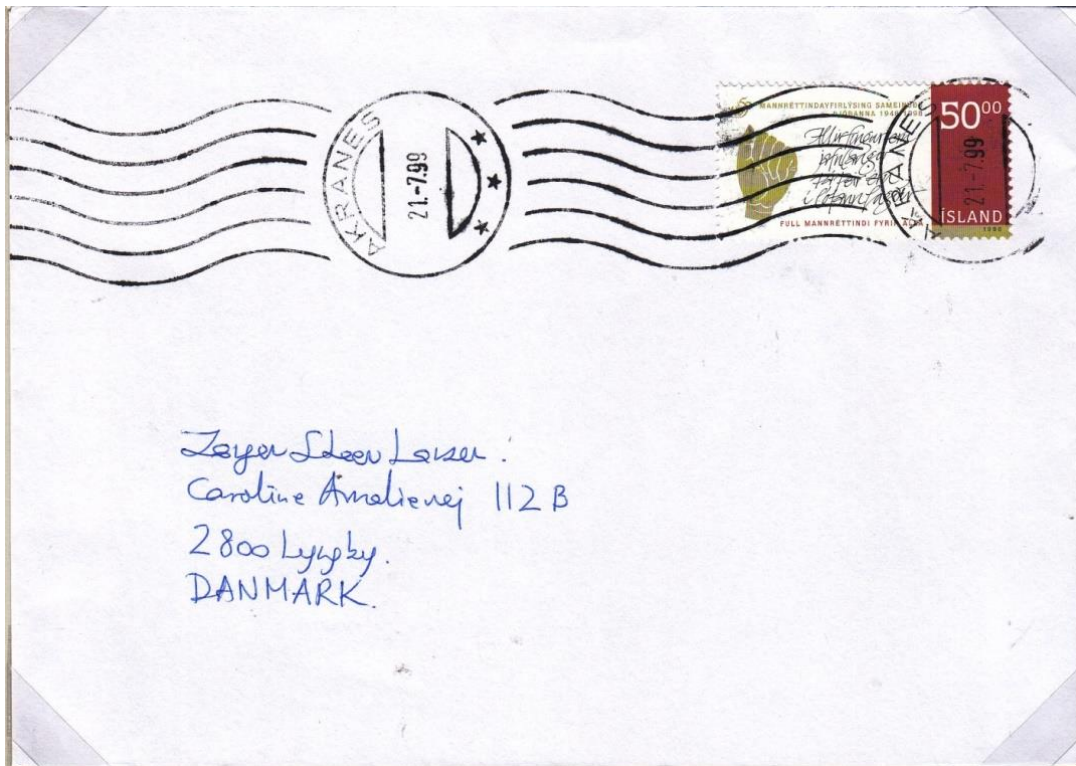 AKRANES
21.-7.99
MANNRÉTTINDAYFIRLÝSING
1948-1998
FULL MANNRÉTTINDI FYRIR ALLA
50⁰⁰
ÍSLAND
1998
AKRANES
21.-7.99
Steen Larsen.
Caroline Amalievej 112 B
2800 Lyngby.
DANMARK.